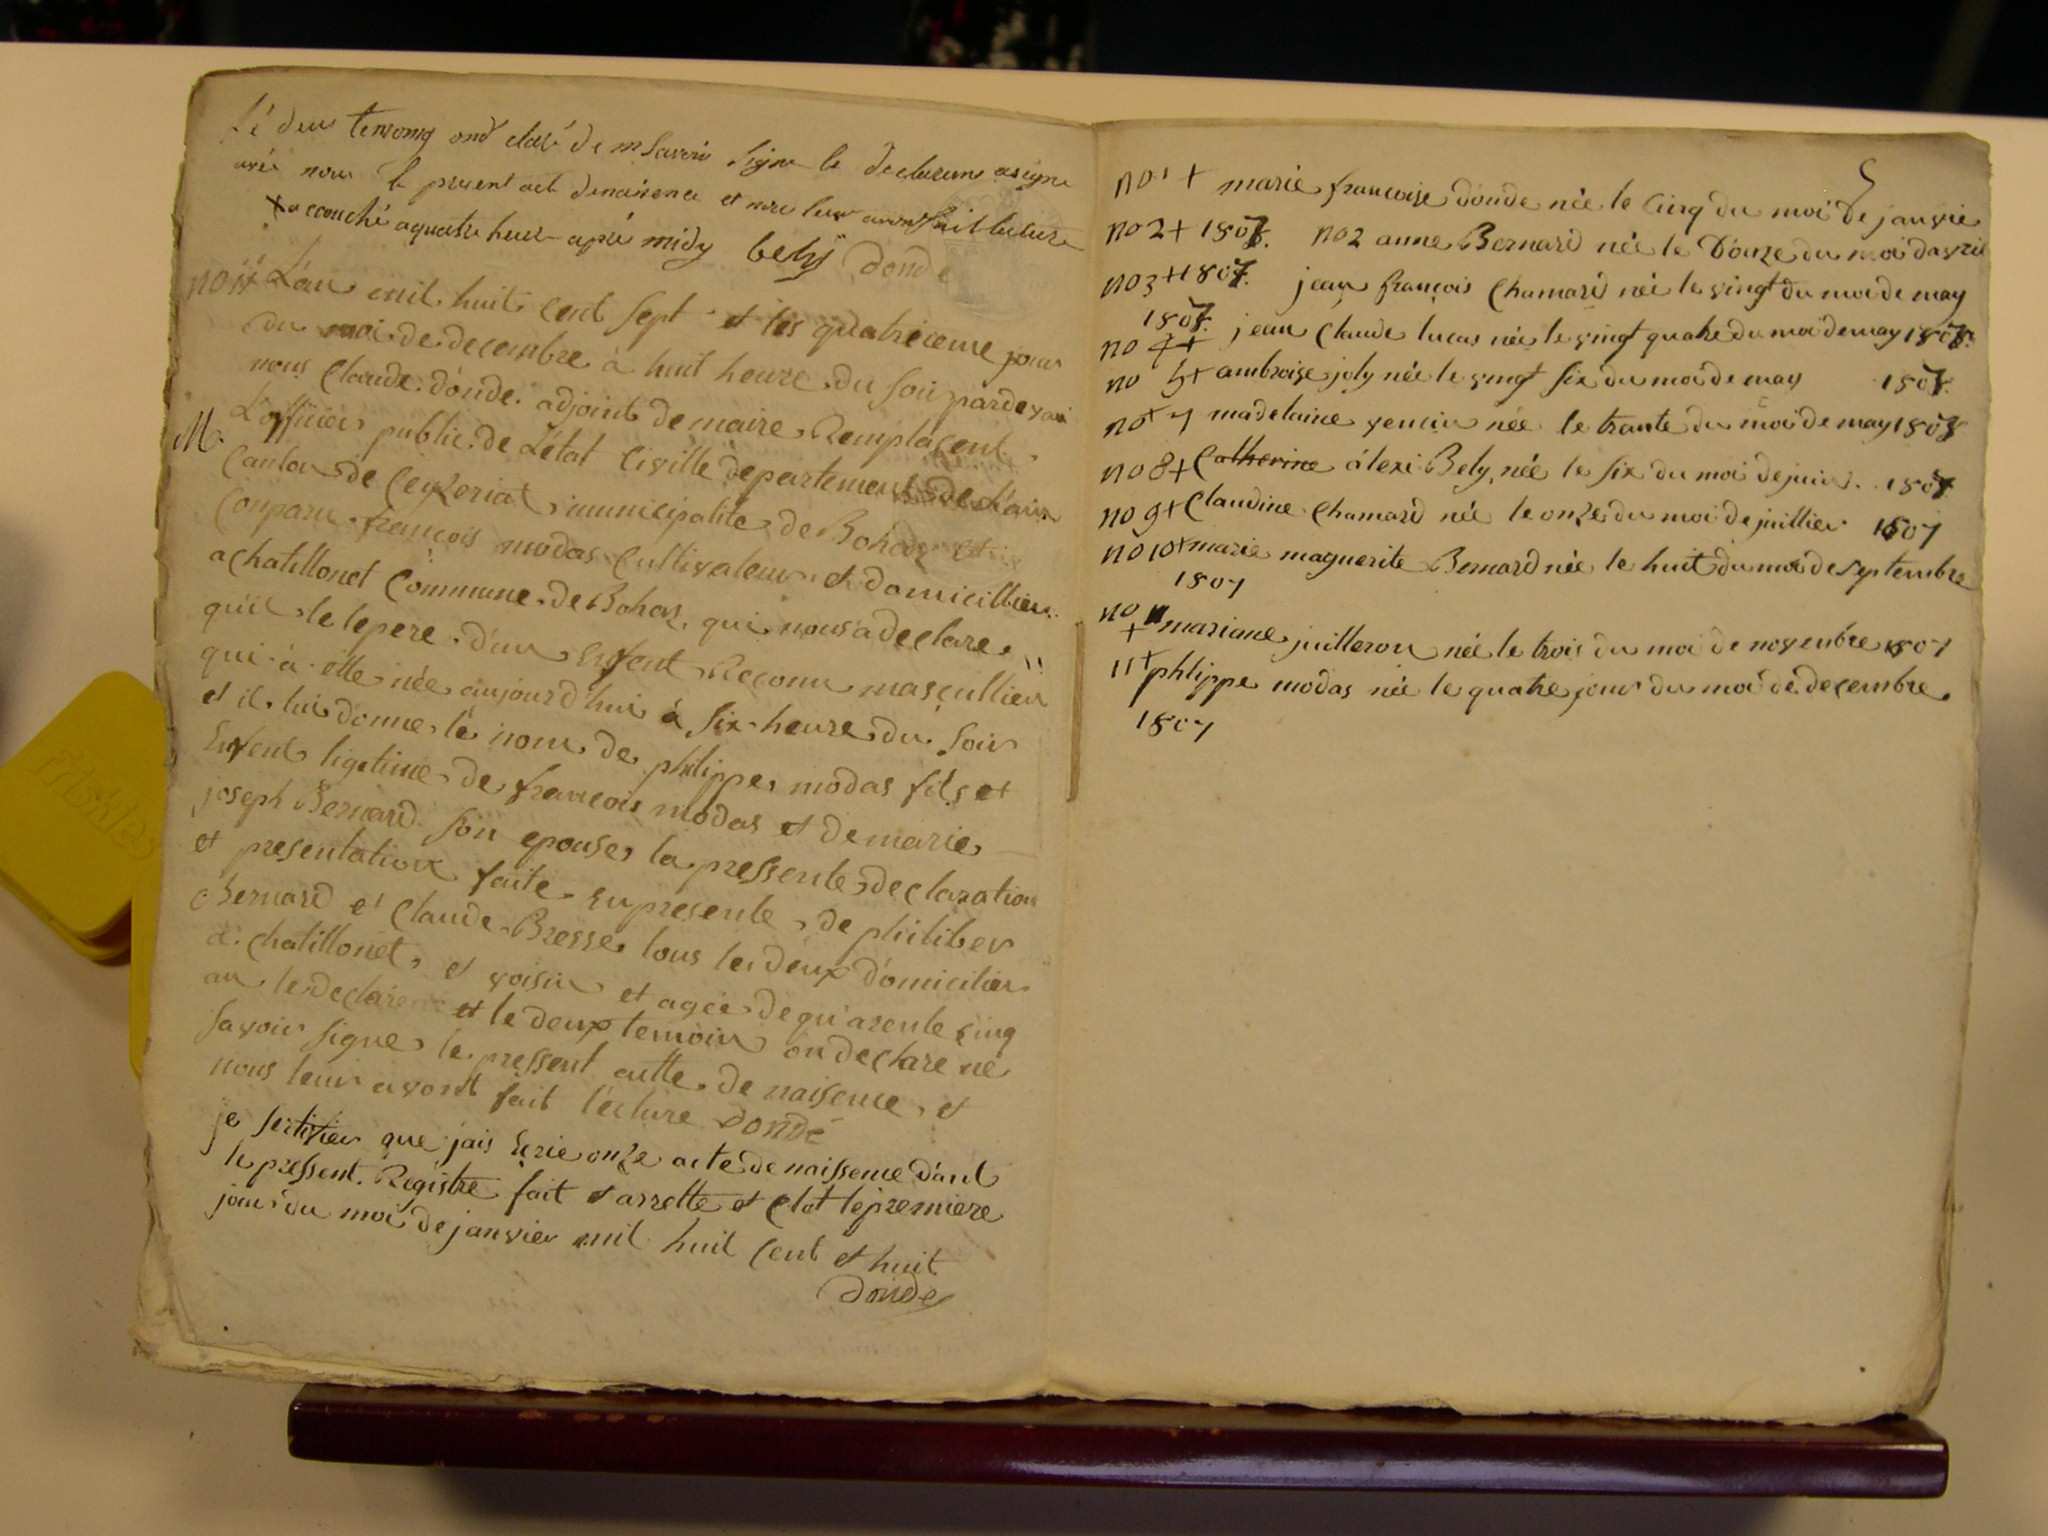 lé deux temoing ond claré de n savoir signe le declarans a signe
avec nous le present act denaisence et nous leur avons fait lecture
+ acouché a quatre heure apré midy bely donde
no 11 + L'an mil huit cent sept et les quatrieme jour
du moi de decembre à huit heure du soir pardevan
nous Claude donde adjoint de maire Remplacent
M. L'officier public de L'état Civille departement de L'ain
Canton de Ceyzeriat municipalite de Bohas est
Conparu françois modas Cultivateur et domicillier
a chatillonet Commune de Bohas, qui nous a declare
qu'il le lepere d'un Enfent Reconu mascullien
qui à elle née aujourd'hui à six heure du soir
et il lui donne lé nom de philippe modas fils et
Enfent ligetime de françois modas et de marie
joseph Bernard son epouse la pressente declaration
et presentation faite en presente de philiber
Bernard et Claude Bresse tous les deux domicilier
a chatillonet et voisin et agée de qu'arente cinq
an le declarent et le deux temoin on declare né
savoir signe le pressent actte de naisence et
nous leur avont fait lécture Dondé
je sertifier que jais Ecrie onze acte de naissence dant
le pressent Régistre fait et arrette et Clot le premiere
jour du moi de janvier mil huit cent et huit
Donde
5
no 1 + marie françoise donde née le cinq du moi de janvie
no 2 + 1807. no 2 anne Bernard née le Douze du moi davril
no 3 + 1807. jean françois Chamard née le vingt du moi de may
1807.
no 4 + jean Claude lucas née le vingt quatre du moi de may 1807.
no 5 + ambroise joly née le vingt six du moi de may 1807.
no + 7 madelaine vencin née le trante du moi de may 1807
no 8 + Catherine álexi Bely née le six du moi de juin. 1807
no 9 + Claudine Chamard née le onze du moi de juillier 1807
no 10 + marie maguerite Bernard née le huit du moi de septembre
1807
no 11 + mariane juilleron née le trois du moi de novembre 1807
11 + phlippe modas née le quatre jour du moi de decembre
1807